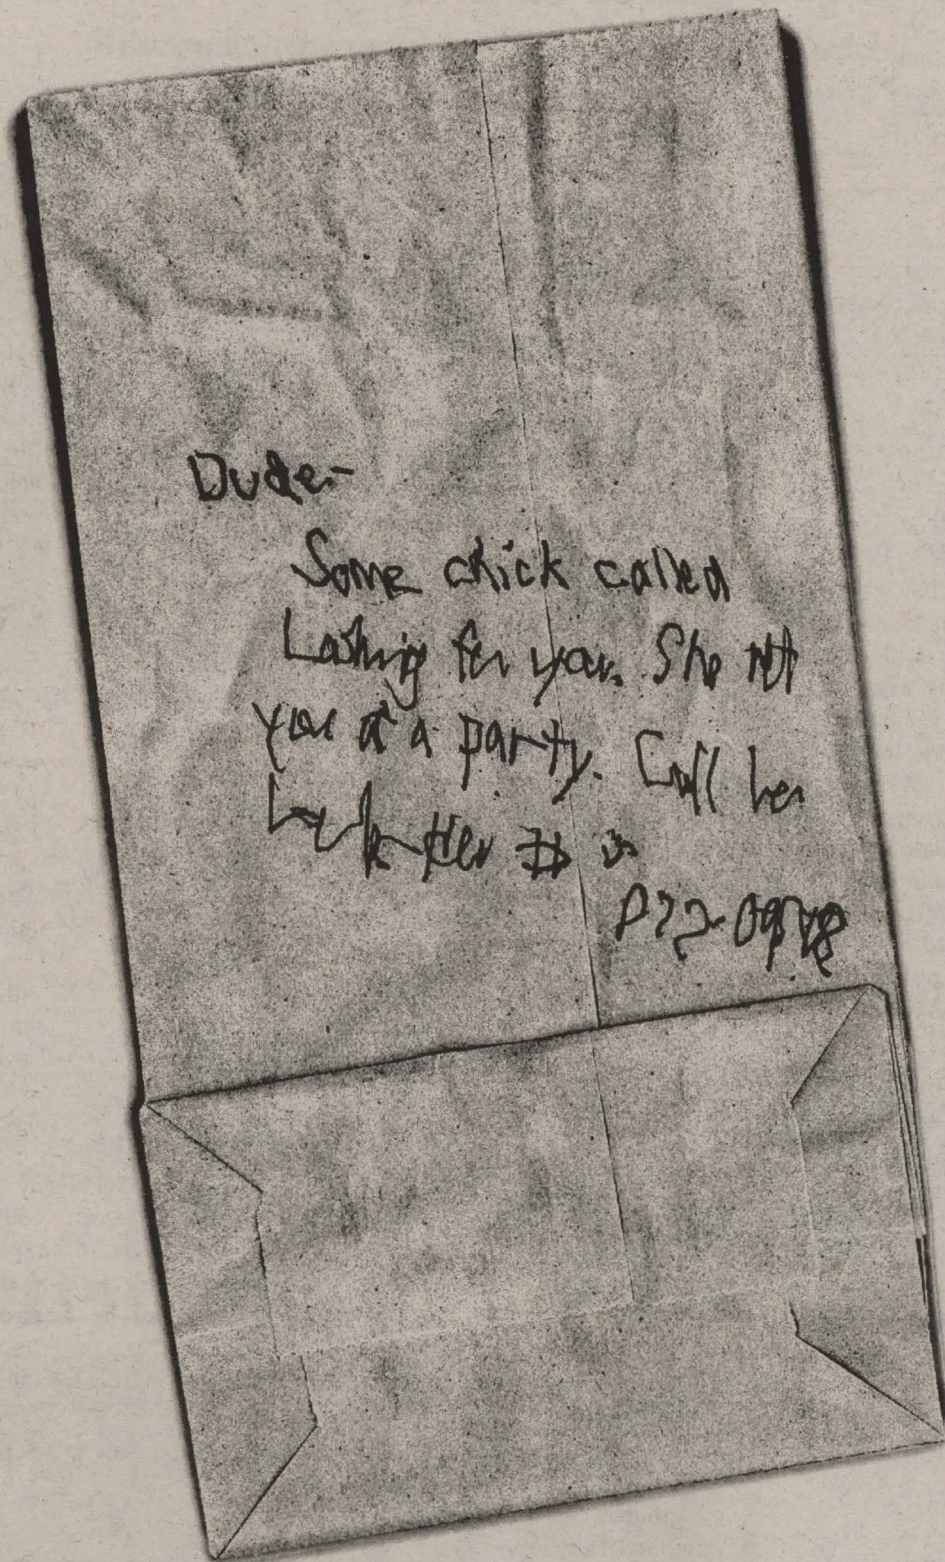 Dude-
Some chick called
Looking for you. She met
you at a party. Call her
back Her # is